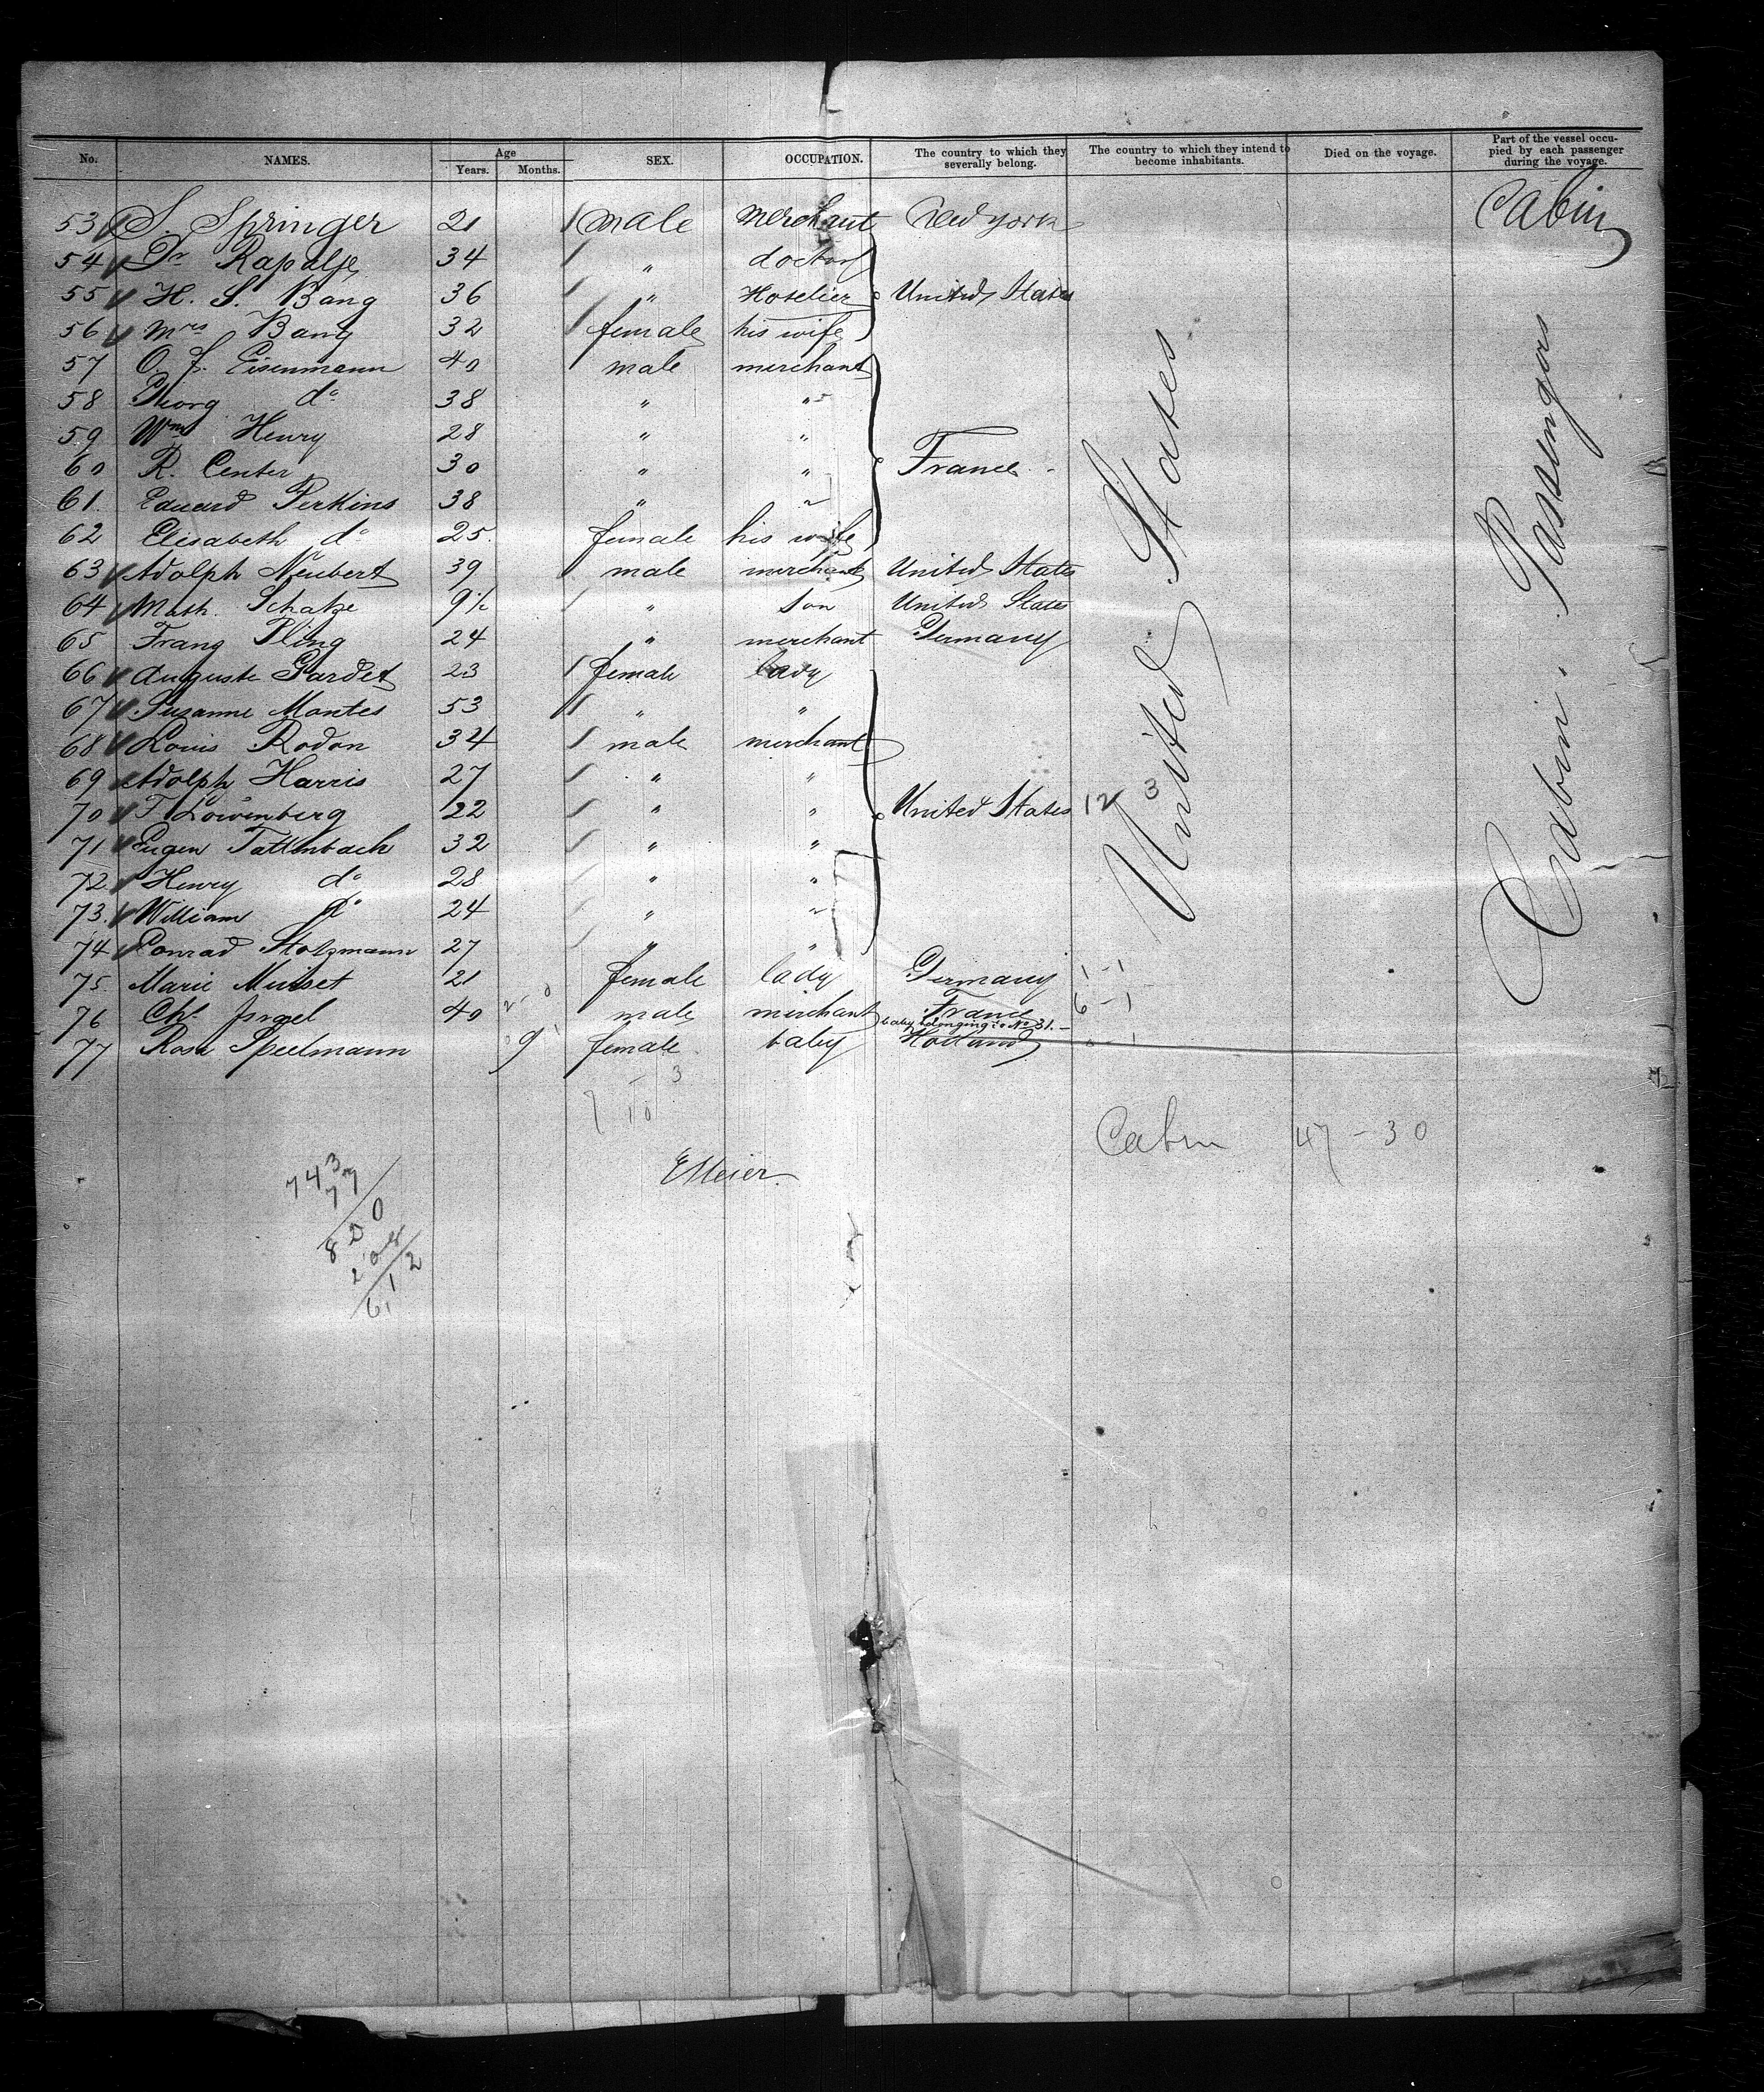 No. NAMES. Age Years. Months. SEX. OCCUPATION. The country to which they severally belong. The country to which they intend to become inhabitants. Died on the voyage. Part of the vessel occupied by each passenger during the voyage.
53 S. Springer 21 male merchant New York Cabin
54 Dr Rapalje 34 " doctor
55 H. S. Bang 36 " Hotelier United States
56 Mrs Bang 32 female his wife
57 O. F. Eisenmann 40 male merchant
58 Georg do 38 " "
59 Wm Henry 28 " "
60 R. Center 30 " " France
61. Eduard Perkins 38 " "
62 Elisabeth do 25. female his wife
63 Adolph Neubert 39 male merchant United States
64 Math. Schatze 9½ " Son United States
65 Franz Pling 24 " merchant Germany
66 Auguste Gardet 23 female lady
67 Susanne Montes 53 " "
68 Louis Rodon 34 male merchant
69 Adolph Harris 27 " "
70 F. Löwenberg 22 " " United States 12 3
71 Eugen Tattenbach 32 " "
72 Henry do 28 " "
73. William do 24 " "
74 Conrad Stotzmann 27 " "
75. Marie Muiset 21 female lady Germany 1-1
76 Chs Israel 40 male merchant France 6-1
baby belonging to No 31.
77 Rosa Speelmann 9 female baby Holland
United States
Cabin Passengers
3
10
Cabin 47-30
EMeier
743
77
820
208
612